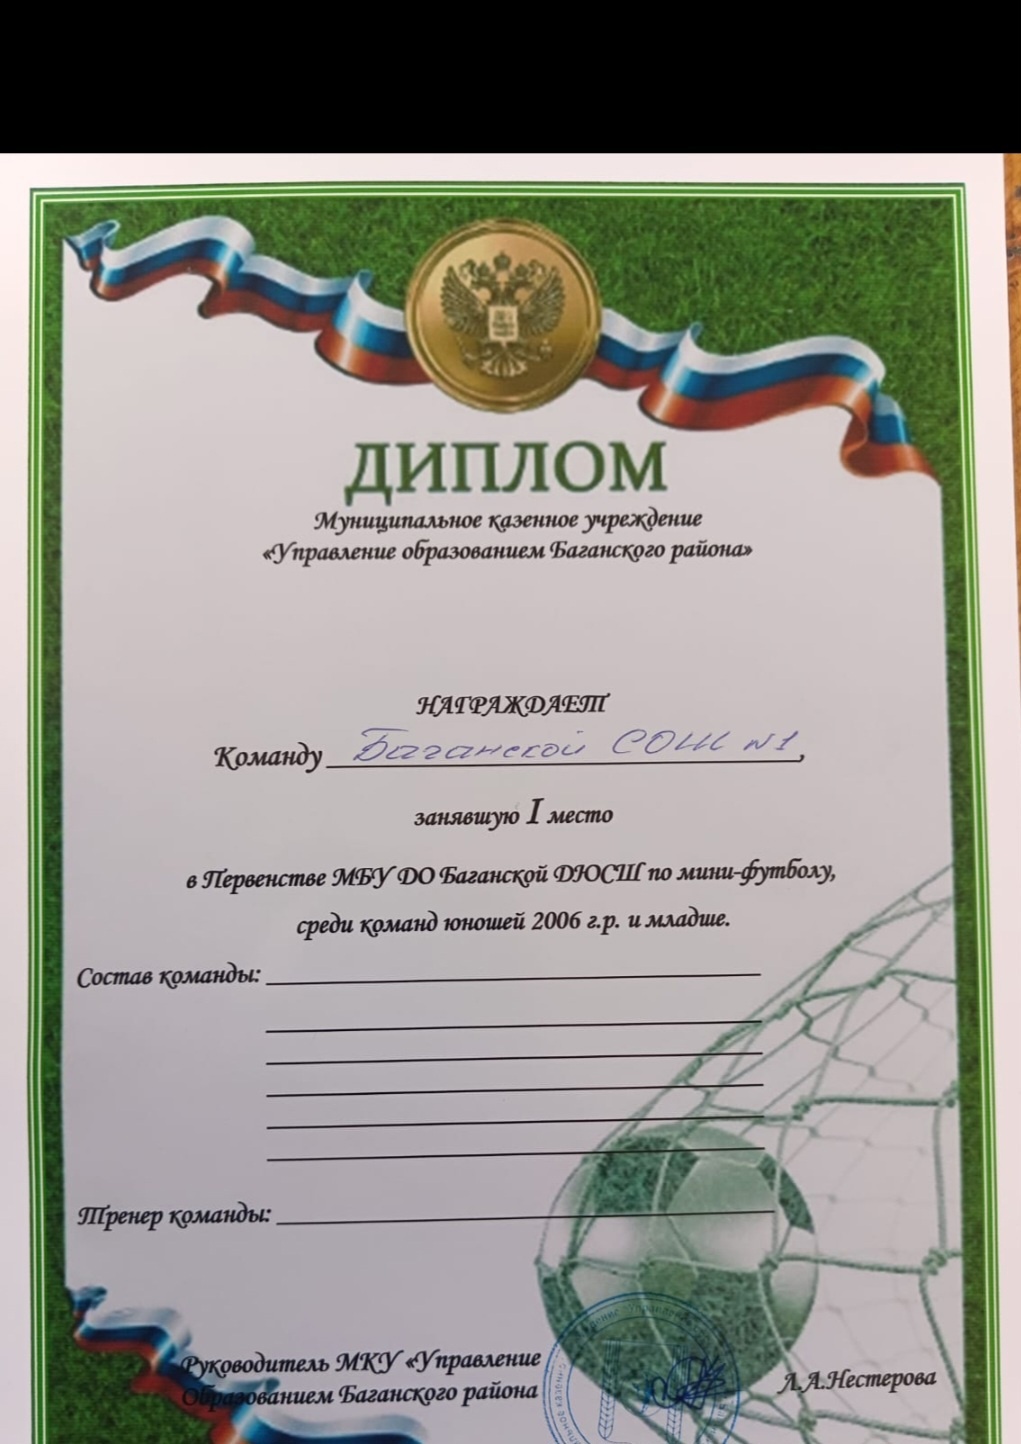 ДИПЛОМ
Муниципальное казенное учреждение
«Управление образованием Баганского района»
НАГРАЖДАЕТ
Команду Баганской СОШ №1,
занявшую I место
в Первенстве МБУ ДО Баганской ДЮСШ по мини-футболу,
среди команд юношей 2006 г.р. и младше.
Состав команды:
Тренер команды:
Руководитель МКУ «Управление
Образованием Баганского района
Л.А.Нестерова